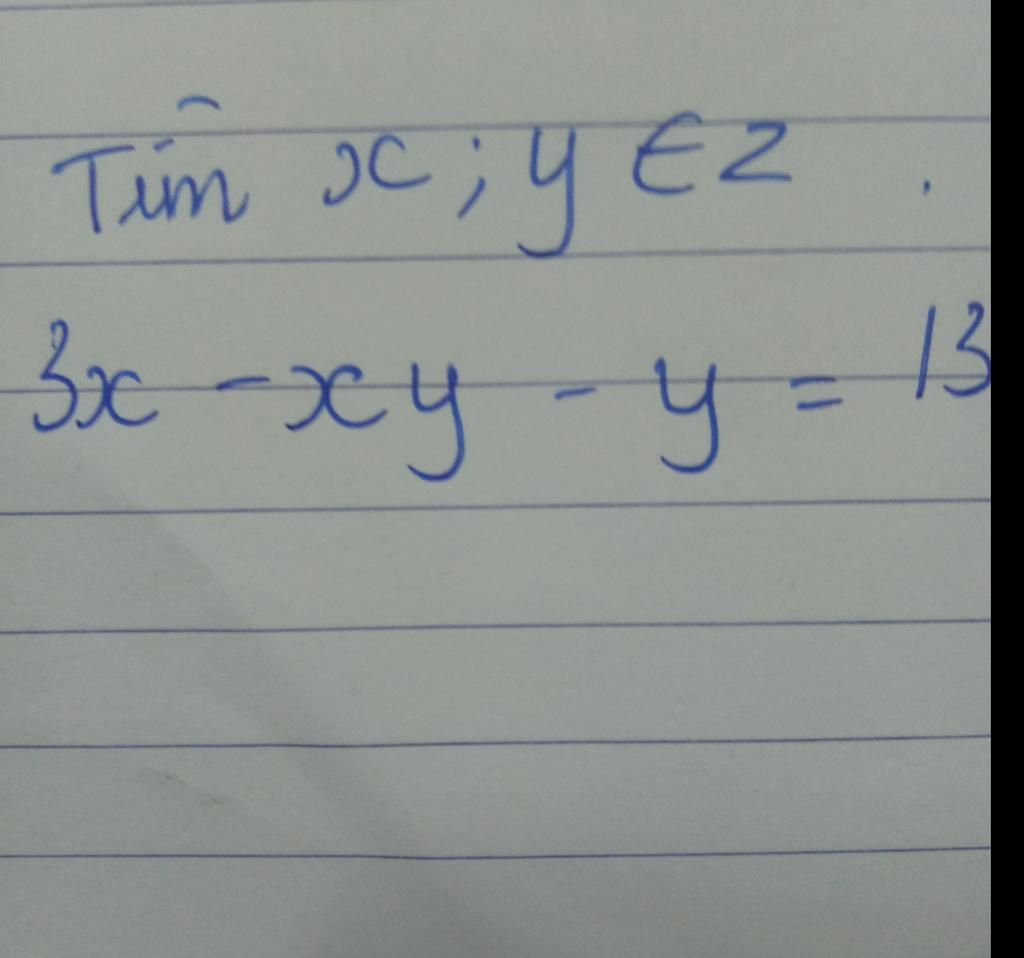 Tìm x ; y ∈ Z .
3x - xy - y = 13